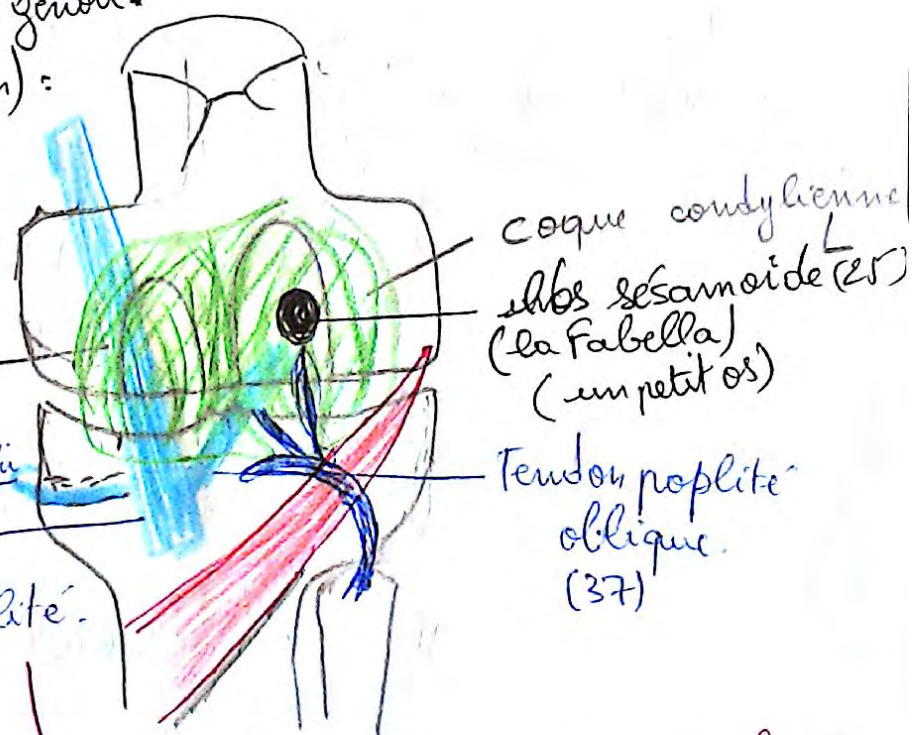 genou.
coque condylienne
sésamoïde (25)
(la Fabella)
(un petit os)
Tendon poplité
oblique.
(37)